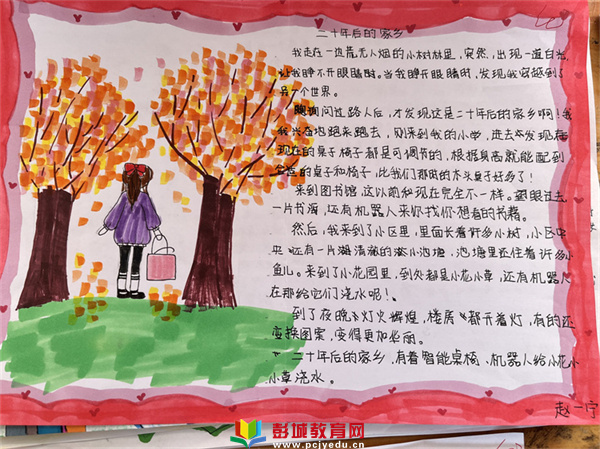 二十年后的家乡
我走在一边荒无人烟的小树林里，突然，出现一道白光
让我睁不开眼睛时。当我睁开眼睛时，发现我穿越到了
另一个世界。
询问过路人后，才发现这是二十年后的家乡啊！我
我兴奋地跑来跑去，刚来到我的小学，进去发现
现在的桌子椅子都是可调节的，根据身高就能配到
合适的桌子和椅子，比我们那时的木头桌子好多了！
来到图书馆，这以前和现在完全不一样。眼过去
一片书海，还有机器人来你找你想看的书籍。
然后，我来到了小区里，里面长着许多小树，小区中
央还有一片清澈的小池塘，池塘里还住着许多小
鱼儿。来到了小花园里，到处都是小花小草，还有机器人
在那给它们浇水呢！
到了夜晚灯火辉煌，楼房都开着灯，有的还
变换图案，变得更加亮丽。
二十年后的家乡，有着智能桌椅、机器人给小花小
小草浇水。
赵一宁
彭城教育网
www.pcjyedu.cn